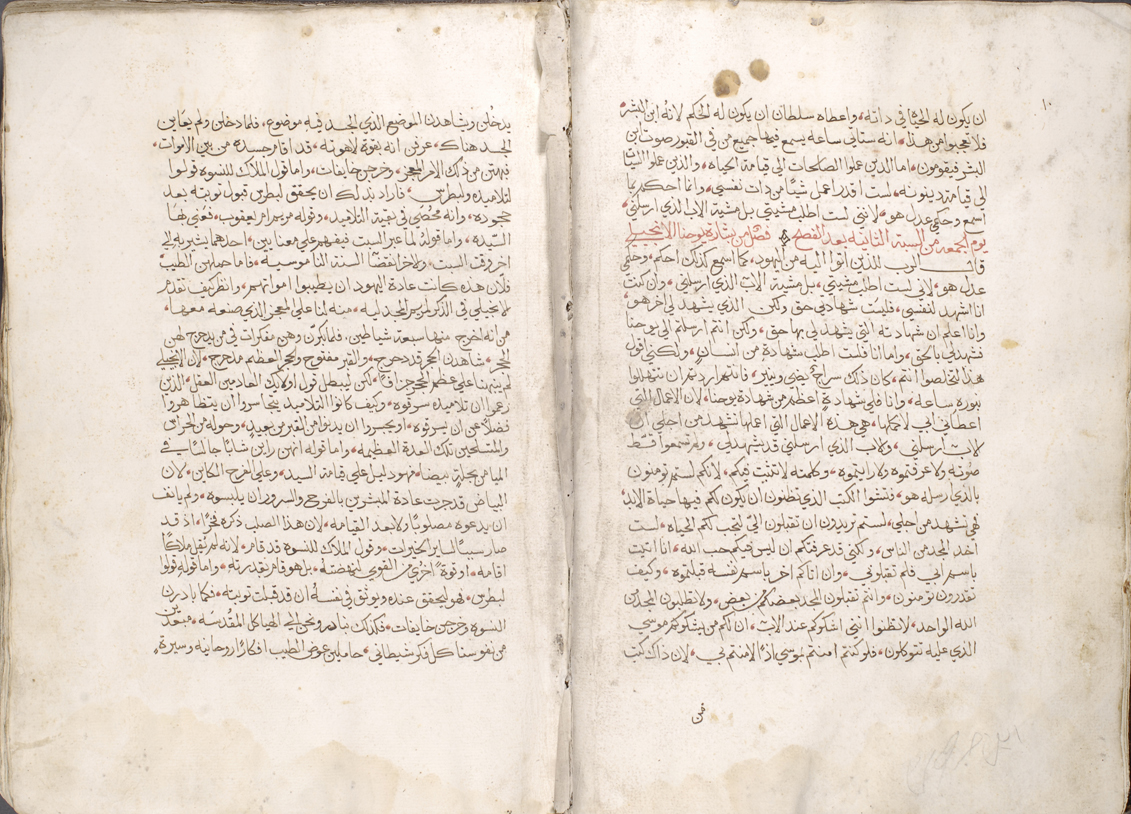 ١٠
ان يكون له الحياة في ذاته، واعطاه سلطان ان يكون له الحكم لانه ابن البشر،
فلا تعجبوا من هذا، انه ستاتي ساعه يسمع فيها جميع من في القبور صوت ابن
البشر فيقومون، اما الذين عملوا الصالحات الي قيامة الحياه، والذين عملوا السيات
الي قيامة دينونه، لست اقدر اعمل شيا من ذات نفسي، وانما احكم بما
اسمع وحكمي عدل هو، لانني لست اطلب مشيتي بل مشية الاب الذي ارسلني،
يوم الجمعه من السبة الثانيه بعد الفصح فصل من بشارة يوحنا الانجيلي
قال الرب للذين اتوا اليه من اليهود، كما اسمع كذلك احكم، وحكمي
عدل هو، لاني لست اطلب مشيتي، بل مشية الاب الذي ارسلني، وان كنت
انا اشهد لنفسي، فليست شهادتي حق ولكن الذي يشهد لي اخر هو،
وانا اعلم ان شهادته التي يشهد لي بها حق، ولكن انتم ارسلتم الي يوحنا
فشهد لي بالحق، واما انا فلست اطلب شهادة من انسان، ولكنني اقول
هذا لتخلصوا انتم، كان ذاك سراج يضي وينير، فانتم اردتم ان تتهللوا
بنوره ساعه، وانا فلي شهادة اعظم من شهادة يوحنا، لان الاعمال التي
اعطاني ابي لاكملها، هي هذه الاعمال التي اعملها تشهد من اجلي ان
الاب ارسلني، والاب الذي ارسلني قد شهد لي، ولم تسمعوا قط
صوته ولا عرفتموه ولا رايتموه، وكلمته لا تثبت فيكم، لانكم لستم تومنون
بالذي رسله هو، فتشوا الكتب الذي تظنون ان يكون لكم فيها حياة الابد
فهي تشهد من اجلي، لستم تريدون ان تقبلون الي لتجب لكم الحياه، لست
اخد المجد من الناس، ولكني قد عرفتكم ان ليس فيكم حب الله، انا اتيت
باسم ابي فلم تقبلوني، وان اتاكم اخر باسم نفسه قبلتموه، وكيف
تقدرون تومنون، وانتم تقبلون المجد بعضكم من بعض، ولا تطلبون المجد من
الله الواحد، لا تظنوا انني اشكوكم عند الاب، ان لكم من يشكوكم موسي
الذي عليه تتوكلون، فلو كنتم امنتم بموسي اذا لامنتم بي، لان ذاك كتب
من
يدخلن ويشاهدن الموضع الذي الجسد فيه موضوع، فلما دخلن ولم يعاين
الجسد هناك، عرفن انه بقوة لاهوته، قد اقام جسده من بين الاموات،
فبهتن من ذلك الامر المعجز، وخرجن خايفات، واما قول الملاك للنسوه قولوا
لتلاميذه ولبطرس، فاراد بذلك ان يحقق لبطرس قبول توبته بعد
جحوده، وانه محصي في بقية التلاميذ، وقوله مريم ام يعقوب، فعني بها
السيده، واما قوله لما عبر السبت فيفهم علي معنايين، احدهما يشير به الي
اخر وقت السبت، والاخر انقضا السنن الناموسيه، فاما حملهن الطيب
فلان هذه كانت عادة اليهود ان يطيبوا امواتهم، وانظر كيف تقدم
الانجيلي في الذكر لمريم المجدليه، منه لمنا علي المعجز الذي صنعه معها،
من انه اخرج منها سبعة شياطين، فلما بكرن وهن مفكرات في من يدحرج لهن
الحجر، شاهدن الحجر قد دحرج، والقبر مفتوح والحجر العظيم مدحرج، لان الانجيلي
لم ينبهنا علي عظم الحجر جزافا، لكن ليبطل قول اوليك العادمين العقل، الذين
زعموا ان تلاميذه سرقوه، وكيف كانوا التلاميذ يتجاسروا ان يتظاهروا
فضلا عن ان يسرقوه، او يجسروا ان يدنوا من القبر من بعيد، وحوله من الحراس
والمتسلحين تلك العدة العظيمه، واما قوله انهن راين شابا جالسا في
الميامن بحلة بيضا، فهو دليل علي قيامة السيد، وعلي الفرح الكاين، لان
البياض قد جرت عادة المبشرين بالفرح والسرور ان يلبسوه، ولم يانف
ان يدعوه مصلوبا ولا بعد القيامه، لان هذا الصلب ذكره فخرا، اذ قد
صار سببا لساير الخيرات، وقول الملاك للنسوة قد قام، لانه لم يقل ملاكا
اقامه، او قوة اخري من القوي انهضته، بل هو قام بقدرته، واما قوله قولوا
لبطرس، فهو ليحقق عنده ويوثق في نفسه ان قد قبلت توبته، فكما بادرن
النسوه وخرجن خايفات، فكذلك نبادر ونحن الي الهياكل المقدسه، مبعدين
من نفوسنا كل فكر شيطاني، حاملين عوض الطيب افكارا روحانيه وسيرة